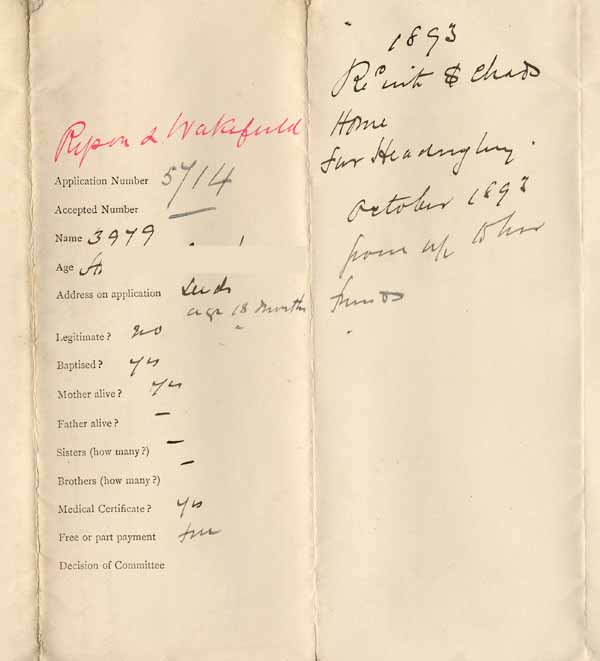 Ripon & Wakefield
Application Number 5714
Accepted Number —
Name 3979
Age
Address on application Leeds
age 18 months
Legitimate? no
Baptised? yes
Mother alive? yes
Father alive? —
Sisters (how many?) —
Brothers (how many?) —
Medical Certificate? yes
Free or part payment free
Decision of Committee
1893
Rec'd into St Chads
Home
Far Headingley.
October 1893
given up to her
friends